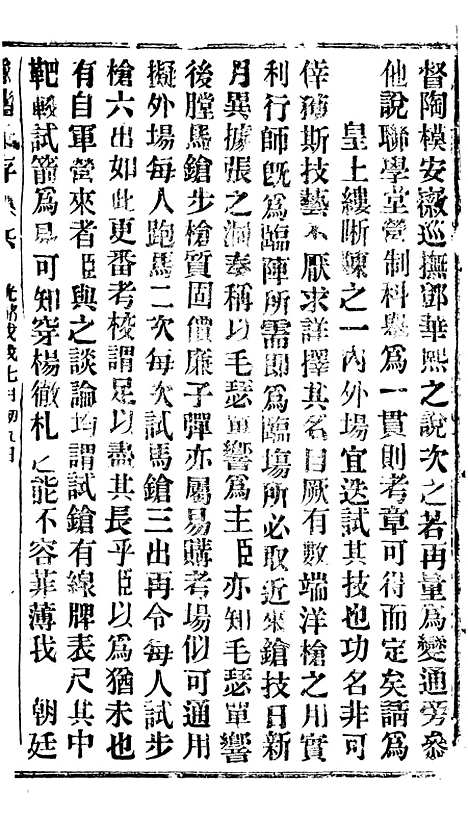 督陶模安徽巡撫鄧華熙之說次之若再量為變通旁參
他說聯學堂營制科舉為一貫則考章可得而定矣請為
皇上縷晰陳之一內外場宜迭試其技也功名非可
倖獲斯技藝不厭求詳擇其名目厥有數端洋槍之用實
利行師既為臨陣所需即為臨場所必取近來鎗技日新
月異據張之洞奏稱以毛瑟單響為主臣亦知毛瑟單響
後膛馬鎗步槍質固價廉子彈亦屬易購考場似可通用
擬外場每人跑馬二次每次試馬鎗三出再令每人試步
槍六出如此更番考校謂足以盡其長乎臣以為猶未也
有自軍營來者臣與之談論均謂試鎗有線牌表尺其中
靶較試箭為易可知穿楊徹札之能不容菲薄我 朝廷
光緒戊戌七月初九日